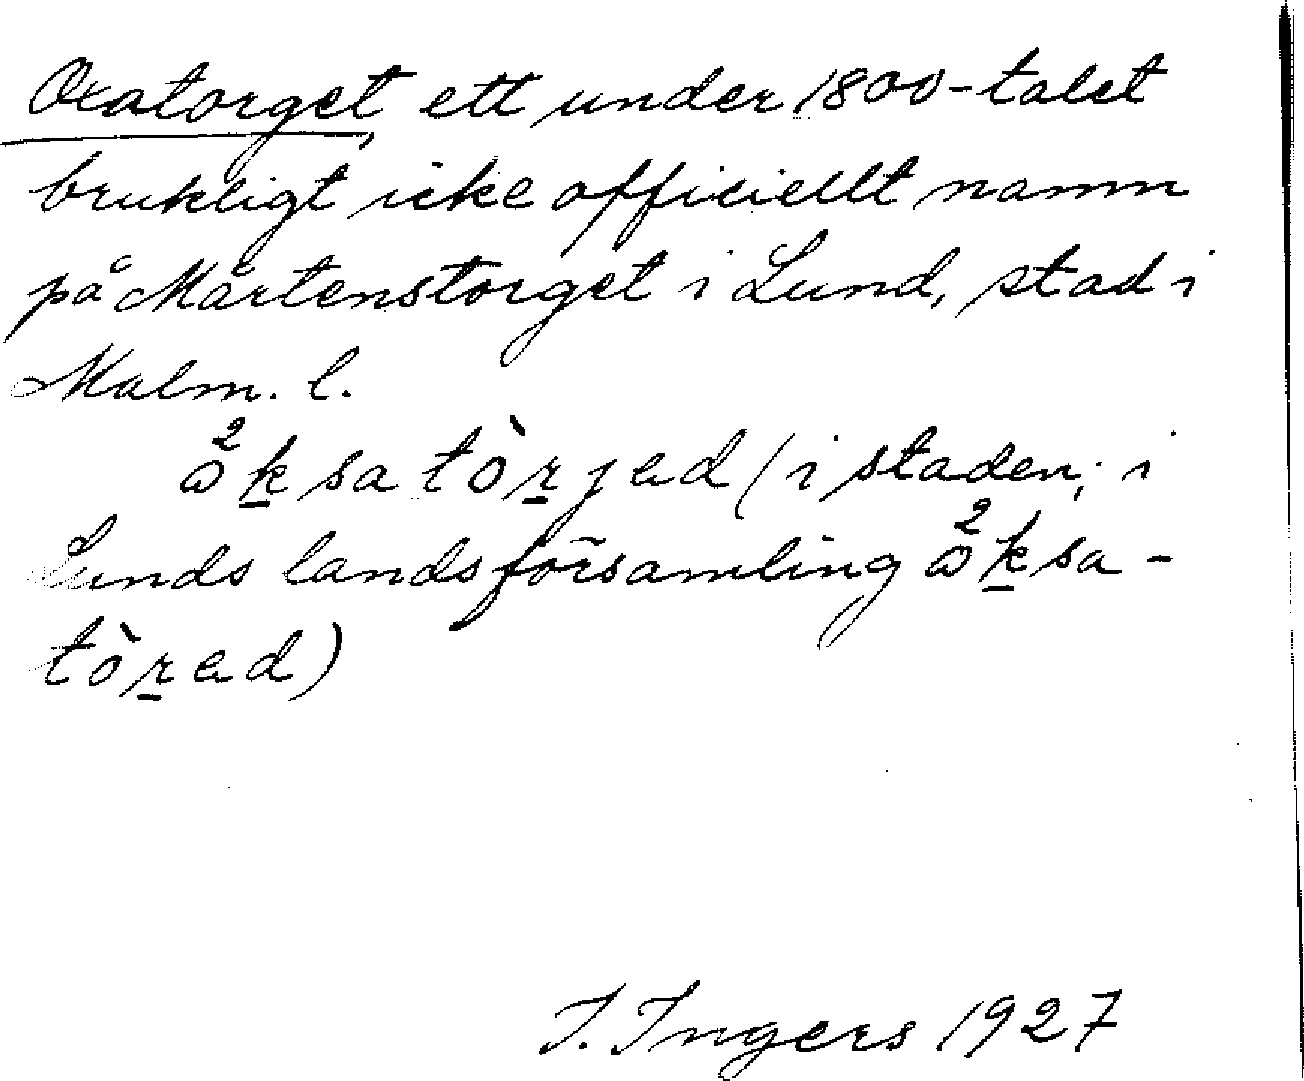 Oxatorget, ett under 1800-talet
brukligt icke officiellt namn
på Mårtenstorget i Lund, stad i
Malm. l.
ω²k̲satòr̲jad (i staden; i
Lunds landsförsamling ω²k̲sa-
tòr̲ad)
I. Ingers 1927